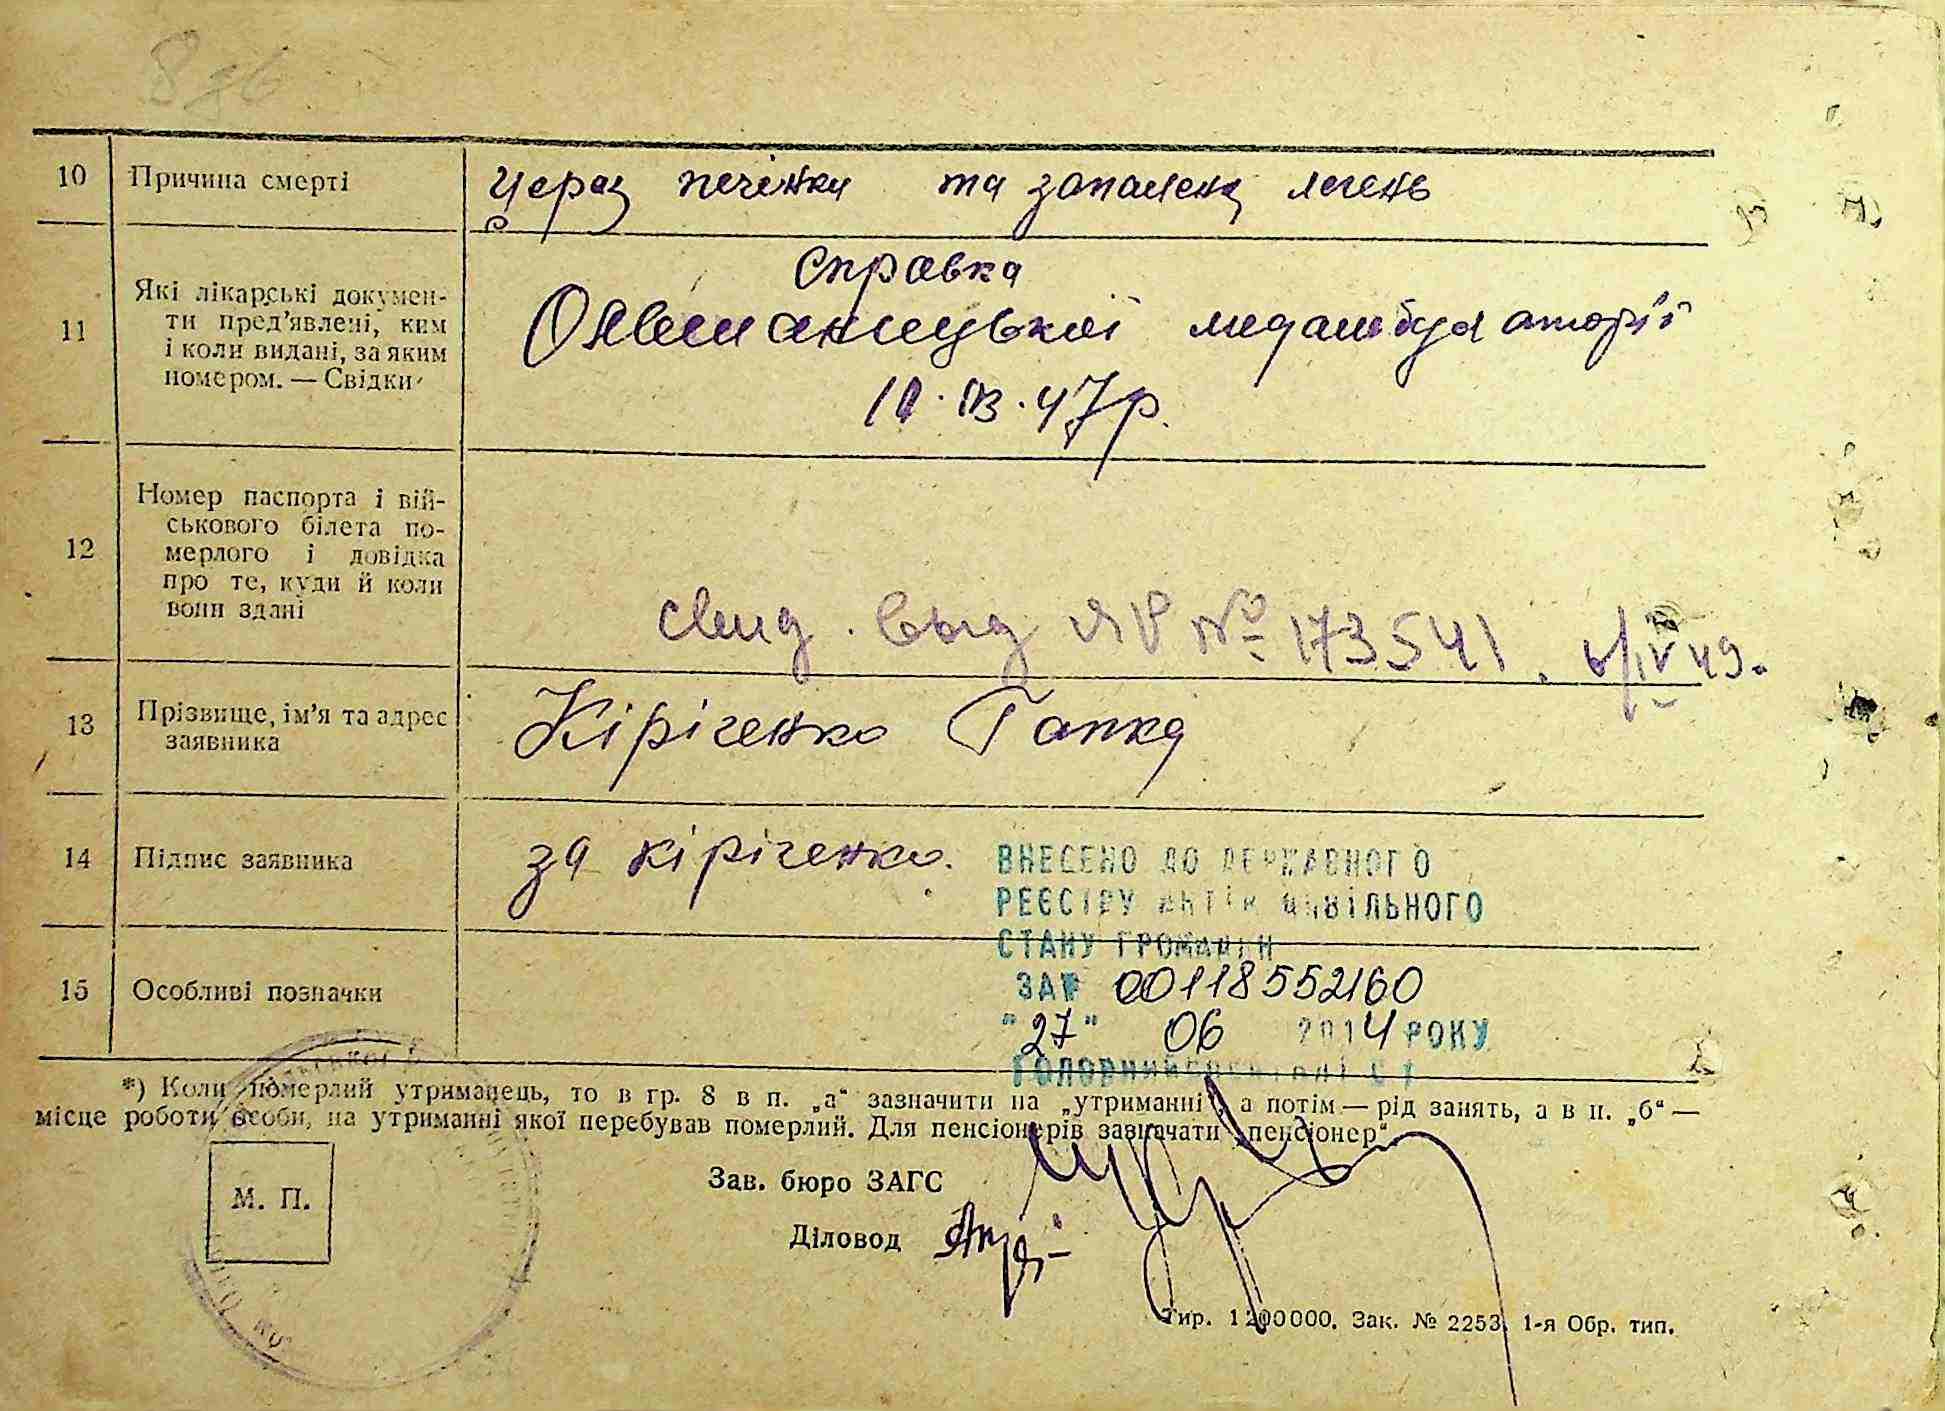 10 Причина смерті
Цероз печінки та запаленя легень
11 Які лікарські докумен-
ти пред'явлені, ким
і коли видані, за яким
номером. — Свідки
Справка
медамбулаторії
47р.
12 Номер паспорта і вій-
ськового білета по-
мерлого і довідка
про те, куди й коли
вони здані
свид. выд № 173541. 6/IV 49.
13 Прізвище, ім'я та адрес
заявника
Кіріченко Гапка
14 Підпис заявника
за кіріченко.
ВНЕСЕНО ДО ДЕРЖАВНОГО
РЕЄСТРУ АКТІВ ЦИВІЛЬНОГО
СТАНУ ГРОМАДЯН
ЗА № 00118552160
"27" 06 2014 РОКУ
15 Особливі позначки
ГОЛОВНИЙ СПЕЦІАЛІСТ
*) Коли померлий утриманець, то в гр. 8 в п. „а“ зазначити на „утриманні“, а потім — рід занять, а в п. „б“ —
місце роботи особи, на утриманні якої перебував померлий. Для пенсіонерів зазначати „пенсіонер“.
М. П.
Зав. бюро ЗАГС
Діловод
Тир. 1200000. Зак. № 2253. 1-я Обр. тип.